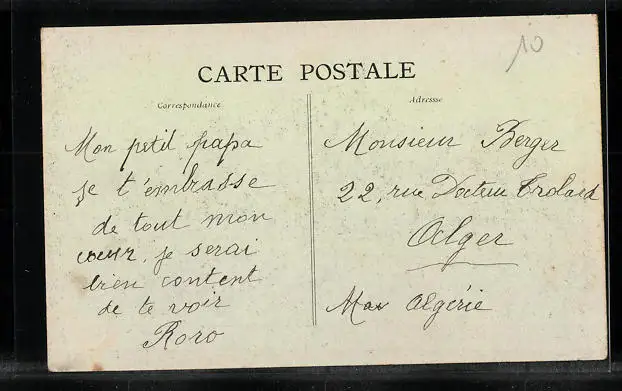 10
CARTE POSTALE
Correspondance
Mon petit papa
je t'embrasse
de tout mon
coeur, je serai
bien content
de te voir
Roro
Adresse
Monsieur Berger
22, rue Docteur Trolard
Alger
Algérie